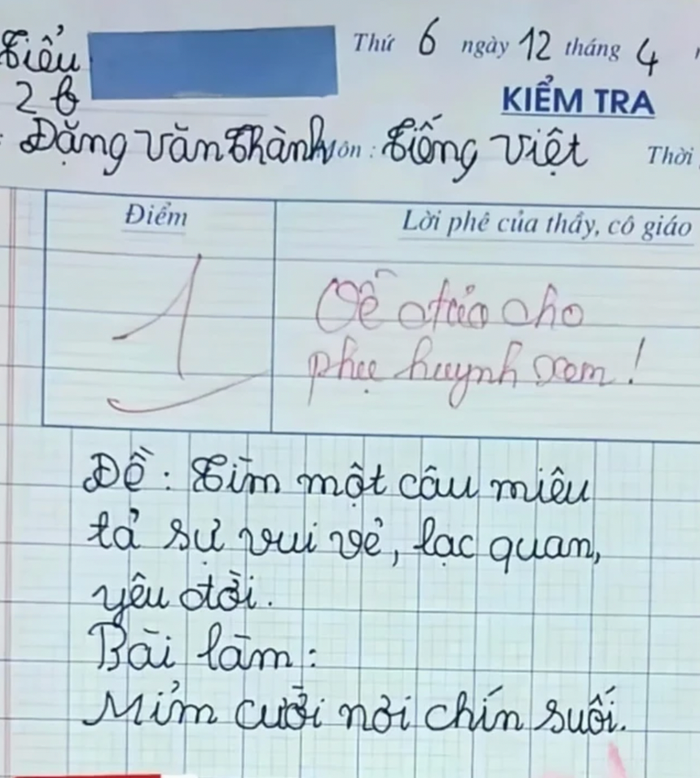 Tiểu
Thứ 6 ngày 12 tháng 4
2 b
KIỂM TRA
Đặng Văn Thành Môn : Tiếng Việt Thời
Điểm
Lời phê của thầy, cô giáo
1
Về đưa cho
phụ huynh xem!
Đề: Tìm một câu miêu
tả sự vui vẻ, lạc quan,
yêu đời.
Bài làm:
Mỉm cười nơi chín suối.